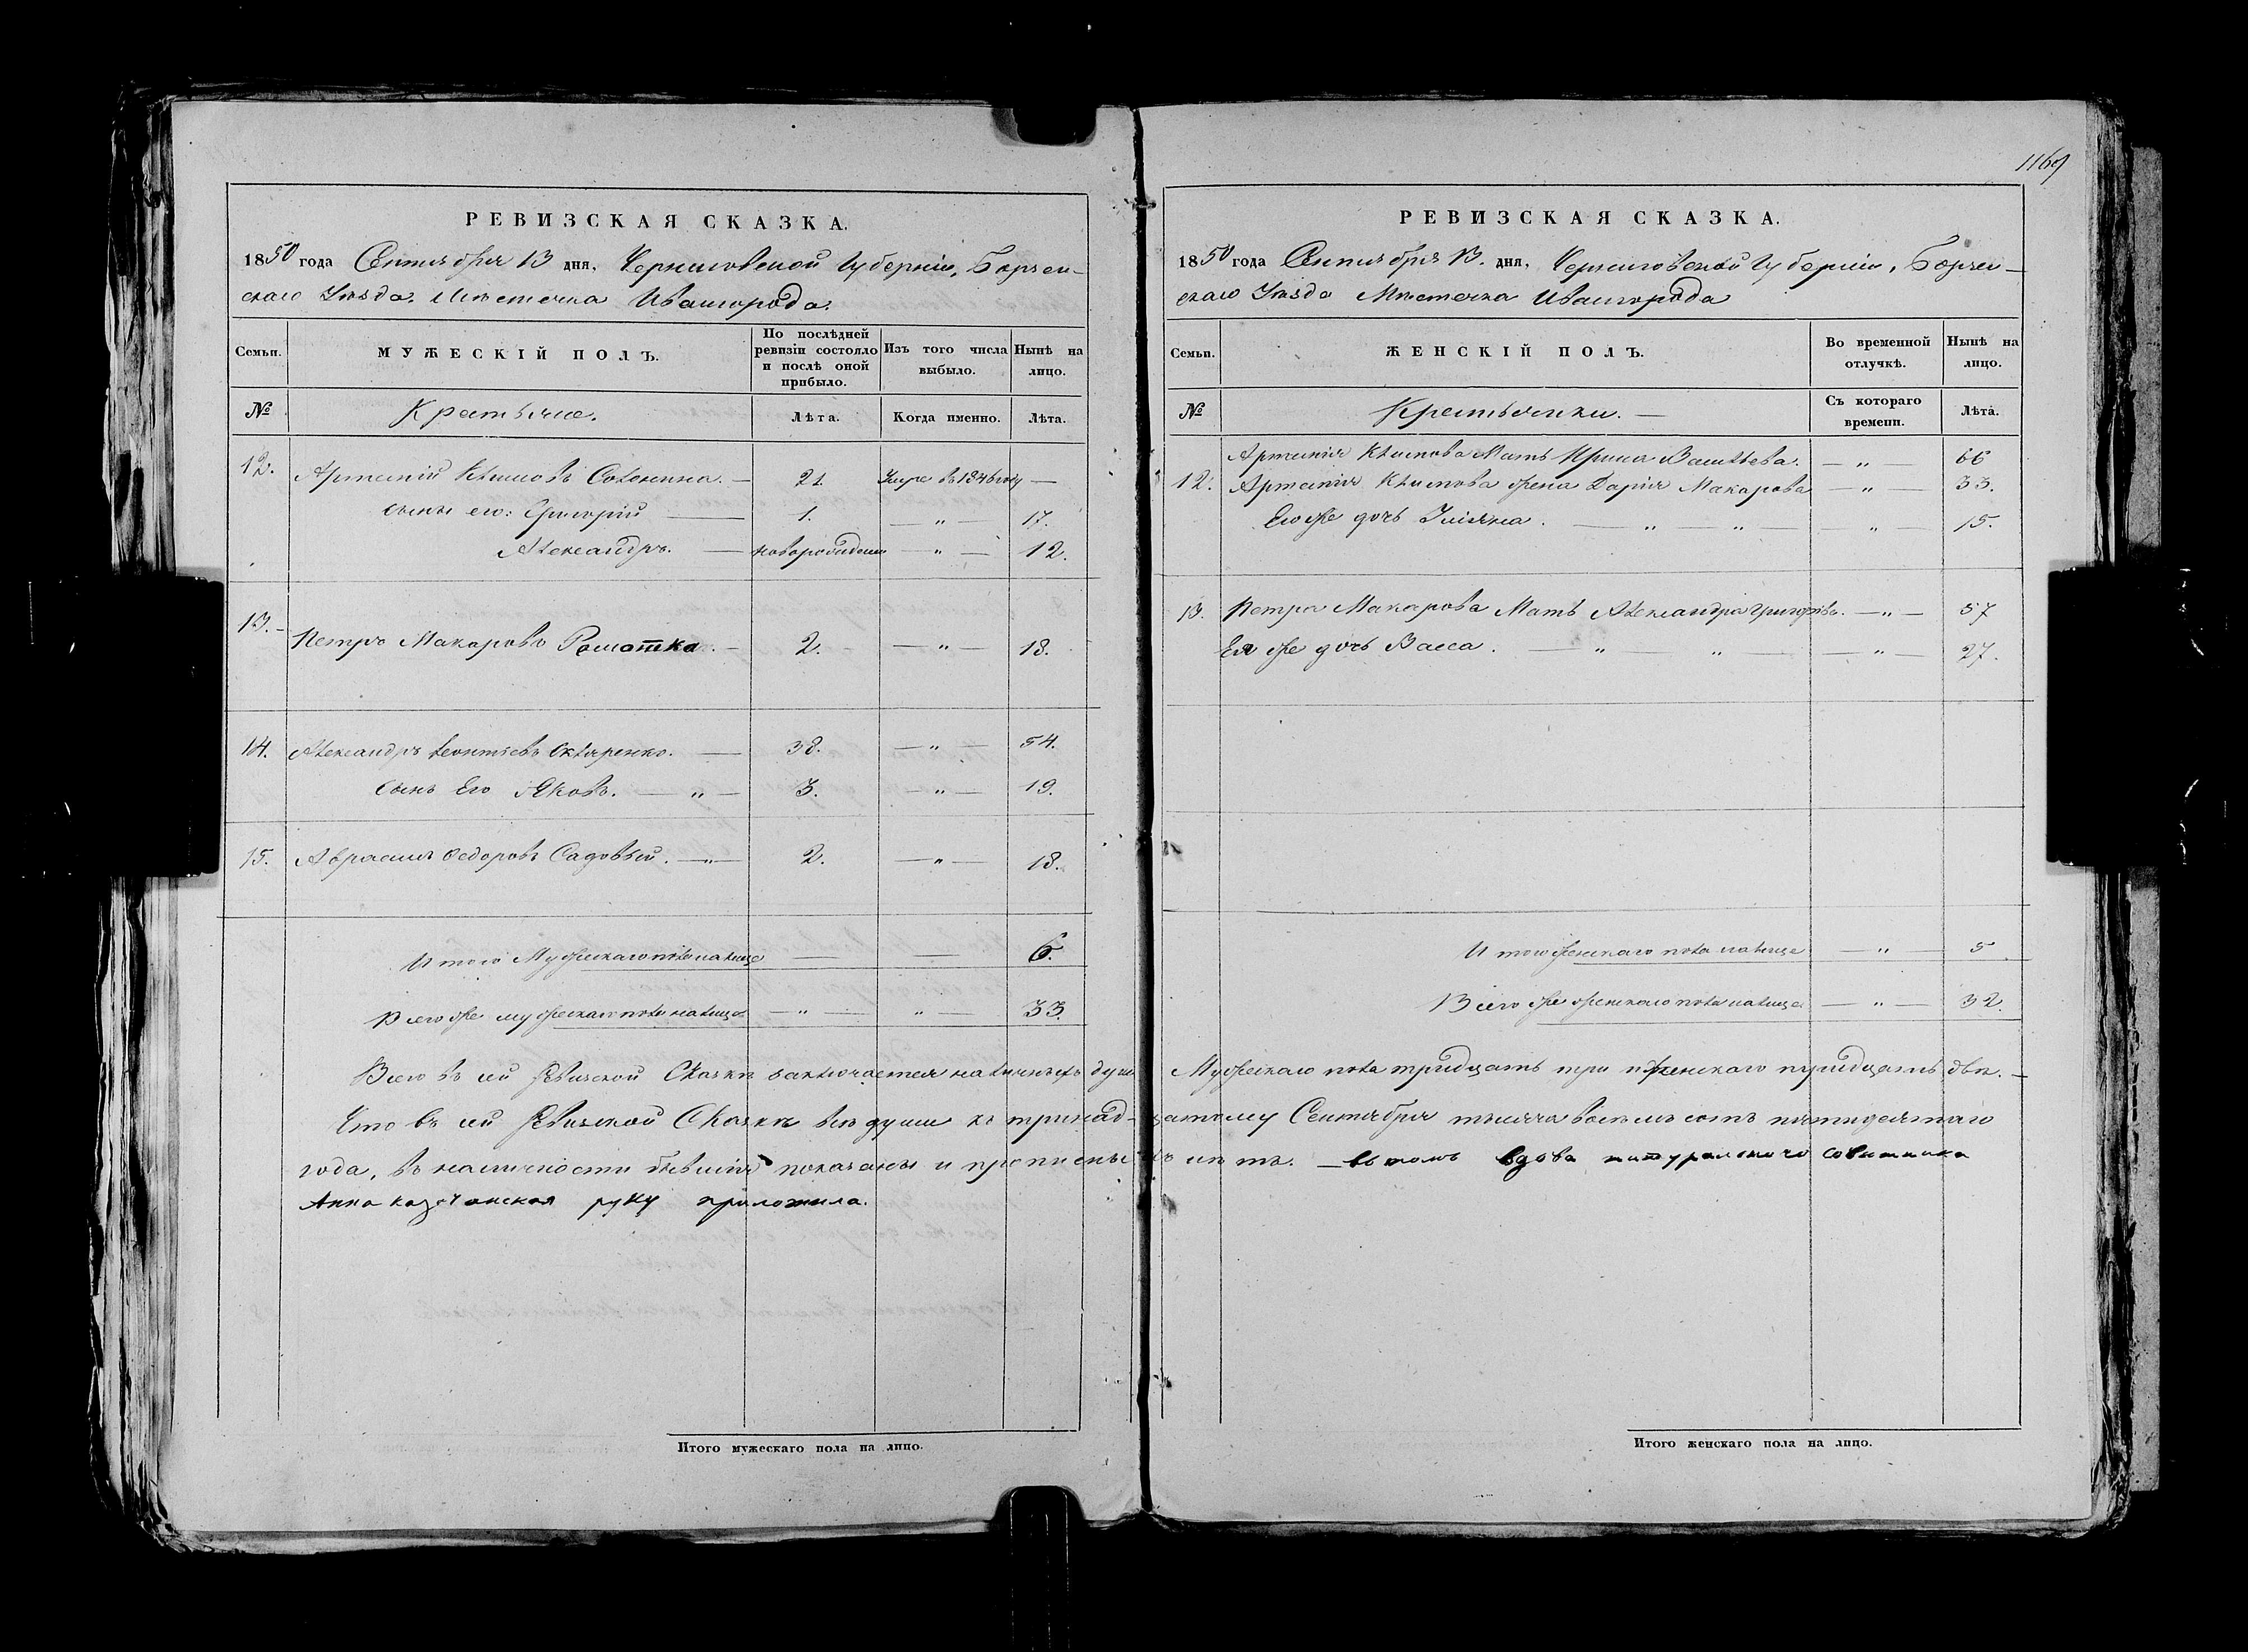 1169
РЕВИЗСКАЯ СКАЗКА.
1850 года Сентября 13 дня, Черниговской Губерніи, Борзен-
скаго Уѣзда. Мѣстечка Ивангорода.
Семьи.
МУЖЕСКІЙ ПОЛЪ.
По послѣдней ревизіи состояло и послѣ оной прибыло.
Изъ того числа выбыло.
Нынѣ на лицо.
№
Крестьяне.
Лѣта.
Когда именно.
Лѣта.
12. Артемій Климовъ . — 21. Умре въ 1846 году —
сыны его: Григорій — 1. — „ — 17.
Александръ. — новорожденъ — „ — 12.
13. — Петръ Макаровъ . — 2. — „ — 18.
14. Александръ Леонтіевъ Скляренко. — 38. — „ — 54.
сынъ Его Яковъ. — „ — 3. — „ — 19.
15. Аврамъ Федоровъ Садовый. — „ — 2. — „ — 18.
Итого Мужескаго пола налице — — 6.
Всего же мужескаго пола налице — „ — „ 33.
РЕВИЗСКАЯ СКАЗКА.
1850 года Сентября 13. дня, Черниговской Губерніи, Борзен-
скаго Уѣзда Мѣстечка Ивангорода
Семьи.
ЖЕНСКІЙ ПОЛЪ.
Во временной отлучкѣ.
Нынѣ на лицо.
№
Крестьянки. —
Съ котораго времени.
Лѣта.
Артемія Климова Мать Ирина Васильева. — „ — 66
12. Артемія Климова жена Дарія Макарова — „ — 33.
Его же дочь Уліяна. — „ — „ — „ — 15.
13. Петра Макарова Мать Александра Григорьева. — „ — 57
Ея же дочь Васса. — „ — „ — „ — 27.
Итого женскаго пола налице — „ — 5
Всего же женскаго пола налице — „ — 32.
Всего въ сей Ревизской Сказкѣ заключается наличныхъ душъ Мужескаго пола тридцать три и женскаго тридцать двѣ. —
Что въ сей Ревизской Сказкѣ всѣ души къ тринад-цатому Сентября тысяча восемь сотъ пятидесятаго
года, въ наличности бывшія показаны и прописныхъ нѣтъ. — въ томъ вдова титулярного Советника
Анна руку приложила.
Итого мужескаго пола на лицо.
Итого женскаго пола на лицо.